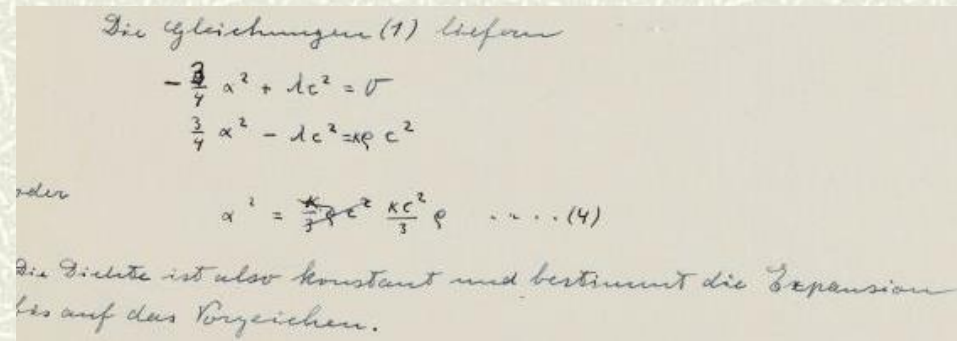 Die Gleichungen (1) liefern
- 3/4 α² + λc² = 0
3/4 α² - λc² = κρ c²
oder
α² = κ/3 ρ c² κc²/3 ρ . . . . (4)
Die Dichte ist also konstant und bestimmt die Expansion
bis auf das Vorzeichen.